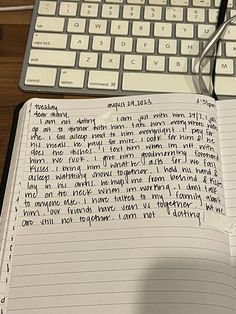 tuesday august 29, 2023
dear diary,
I am not dating. I am just with him 24/7. I
go out to dinner with him. I take him everywhere with
me. I fall asleep next to him overnight. I pay for
his meals. he pay for mine. I cook for him & he
does the dishes. I text him when im not with
him. we fuck. I give him goodmorning forehead
kisses. I bring him what he asks for. we fall
asleep watching shows together. I hold his hand &
lay in his arms. he hugs me from behind & kiss
me on the neck when im working. I dont talk
to anyone else. I have talked to my family about
him. our friends have seen us together, but we
are still not together. I am not "dating."